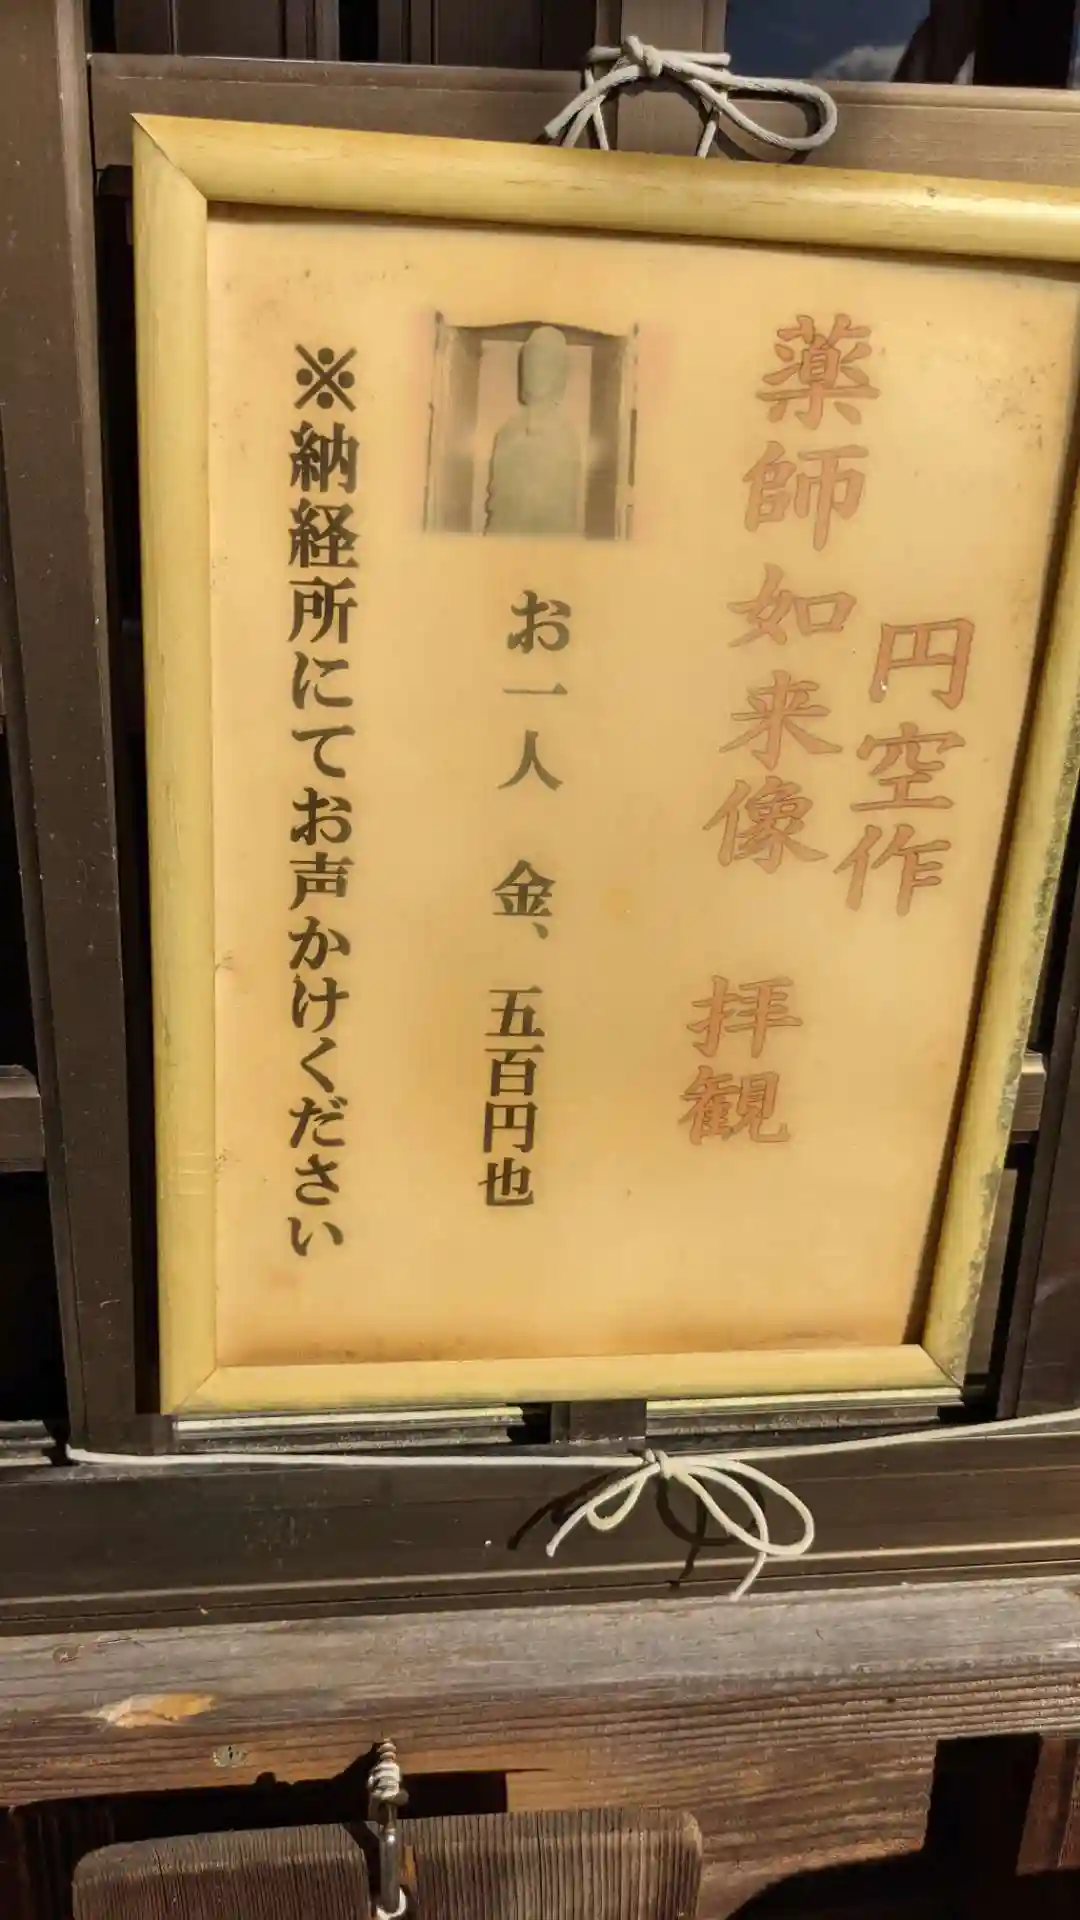 円空作
薬師如来像 拝観
お一人 金、五百円也
※納経所にてお声かけください